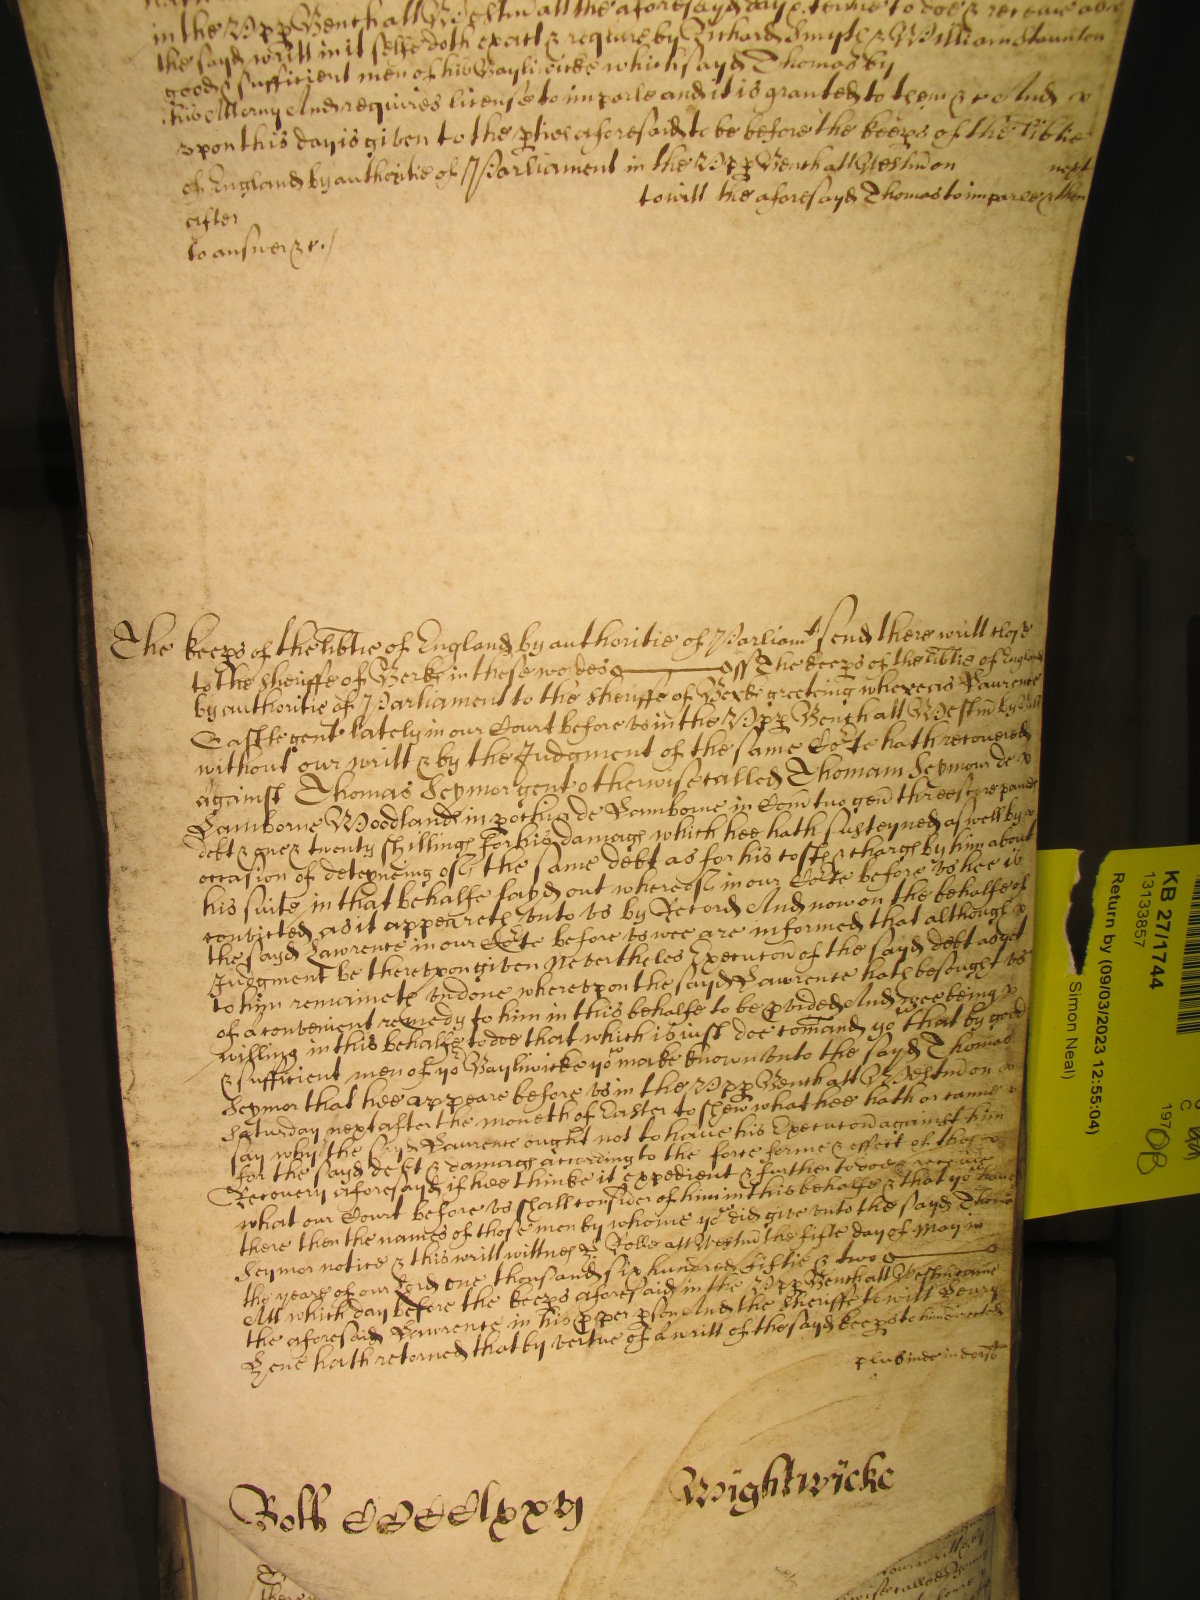 in the Upp Bench att Westm att the aforesayd day & terme to doe & receive all
the sayd writt in it selfe doth exact & require by Richard Smyth & William Staunton
good & sufficient men of his Bayliwicke which sayd Thomas by
his Attorny And requires license to imparle and it is granted to them &c And
upon this day is given to the pties aforesaid to be before the keeps of the libtie
of England by authoritie of Parliament in the Upp Bench att Westm on next
after to witt the aforesayd Thomas to imparle & then
to answer &c./
The keeps of the libtie of England by authoritie of Parliamt send there writt close
to the Sheriffe of Berks in these wordes ss The keeps of the libtie of England
by authoritie of Parliament to the Sheriffe of Berks greeteing whereas Lawrence
Castle gent lately in our Court before us in the Upp Bench att Westm by Bill
without our writt & by the Judgment of the same Corte hath recovered
against Thomas Seymor gent otherwise called Thomam Seymour de
Lamborne Woodlands in pochia de Lamborne in Com tuo gen threescore pounds
debt & twenty shillings for his damags which hee hath susteyned as well by
occasion of deteyneing of the same debt as for his costs & charges by him about
his suite in that behalfe layd out whereof in our Corte before us hee is
convicted as it appeareth unto us by Record And now on the behalfe of
the sayd Lawrence in our Corte before us wee are informed that although
Judgment be thereupon given Nevertheles Execucon of the sayd debt as yet
to him remaineth undone whereupon the sayd Lawrence hath besought us
of a convenient remedy to him in this behalfe to be pvided And wee being
willing in this behalfe to doe that which is just doe comand yo that by good
& sufficient men of yor Bayliwicke yo make known unto the sayd Thomas
Seymor that hee appeare before us in the Upp Bench att Westm on
Saturday next after the moneth of Easter to shew what hee hath or canne
say why the sayd Lawrence ought not to have his Execucon against him
for the sayd debt & damags according to the force forme & effect of the
Recovery aforesayd if hee thinke it expedient & further to doe & receive
what our Court before us shall consider of him in this behalfe & that yo have
there then the names of those men by whome yo did give unto the sayd Thomas
Seymor notice & this writt wittnes H Rolle att Westm the fifte day of May in
the yeare of our Lord one thousand six hundred fiftie & two
Att which day before the keeps aforesaid in the Upp Bench att Westm came
the aforesaid Lawrence in his pper pson And the Sheriffe to witt
hath retorned that by vertue of a writt of the sayd keeps to him directed
plus inde in dorso
Rott CCCClxxvj Wightwicke
KB 27/1744
13133857
Return by (09/03/2023 12:55:04)
Simon Neal)